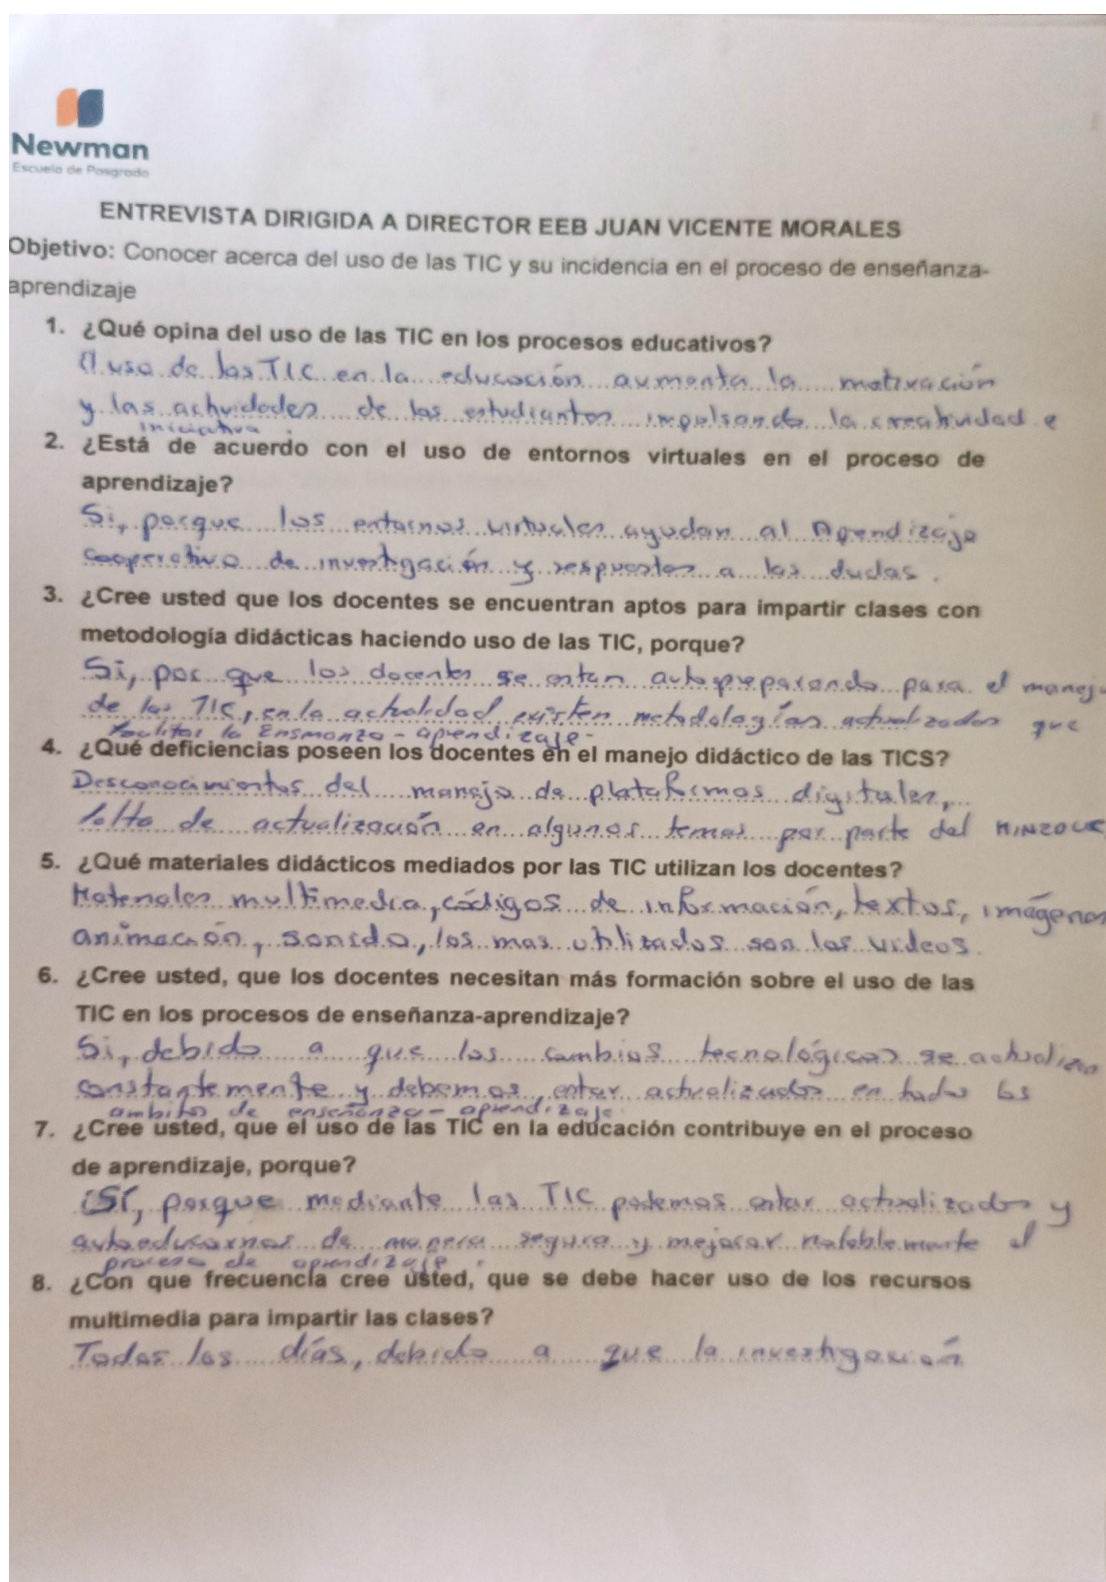 Newman
Escuela de Posgrado
ENTREVISTA DIRIGIDA A DIRECTOR EEB JUAN VICENTE MORALES
Objetivo: Conocer acerca del uso de las TIC y su incidencia en el proceso de enseñanza-
aprendizaje
1. ¿Qué opina del uso de las TIC en los procesos educativos?
El uso de las TIC en la educación aumenta la motivación
y las actividades de los estudiantes impulsando la creatividad e
iniciativa.
2. ¿Está de acuerdo con el uso de entornos virtuales en el proceso de
aprendizaje?
Si, porque los entornos virtuales ayudan al Aprendizaje
cooperativo de investigación y respuestas a las dudas.
3. ¿Cree usted que los docentes se encuentran aptos para impartir clases con
metodología didácticas haciendo uso de las TIC, porque?
Si, por que los docentes se estan autopreparando para el manejo
de las TIC, en la actualidad existen metodologías actualizadas que
facilitas la Ensenanza - aprendizaje-
4. ¿Qué deficiencias poseen los docentes en el manejo didáctico de las TICS?
Desconocimientos del manejo de plataformas digitales,
falta de actualización en algunos temas por parte del
5. ¿Qué materiales didácticos mediados por las TIC utilizan los docentes?
Materiales multimedia, códigos de información, textos, imágenes
animación, sonido, los mas utilizados son los videos.
6. ¿Cree usted, que los docentes necesitan más formación sobre el uso de las
TIC en los procesos de enseñanza-aprendizaje?
Si, debido a que los cambios tecnológicos se actualizan
constantemente y debemos estar actualizados en todos los
ambitos de enseñanza - aprendizaje.
7. ¿Cree usted, que el uso de las TIC en la educación contribuye en el proceso
de aprendizaje, porque?
Sí, porque mediante las TIC podemos estar actualizados y
autoeducarnos de manera segura y mejorar notablemente el
proceso de aprendizaje.
8. ¿Con que frecuencia cree usted, que se debe hacer uso de los recursos
multimedia para impartir las clases?
Todos los días, debido a que la investigación